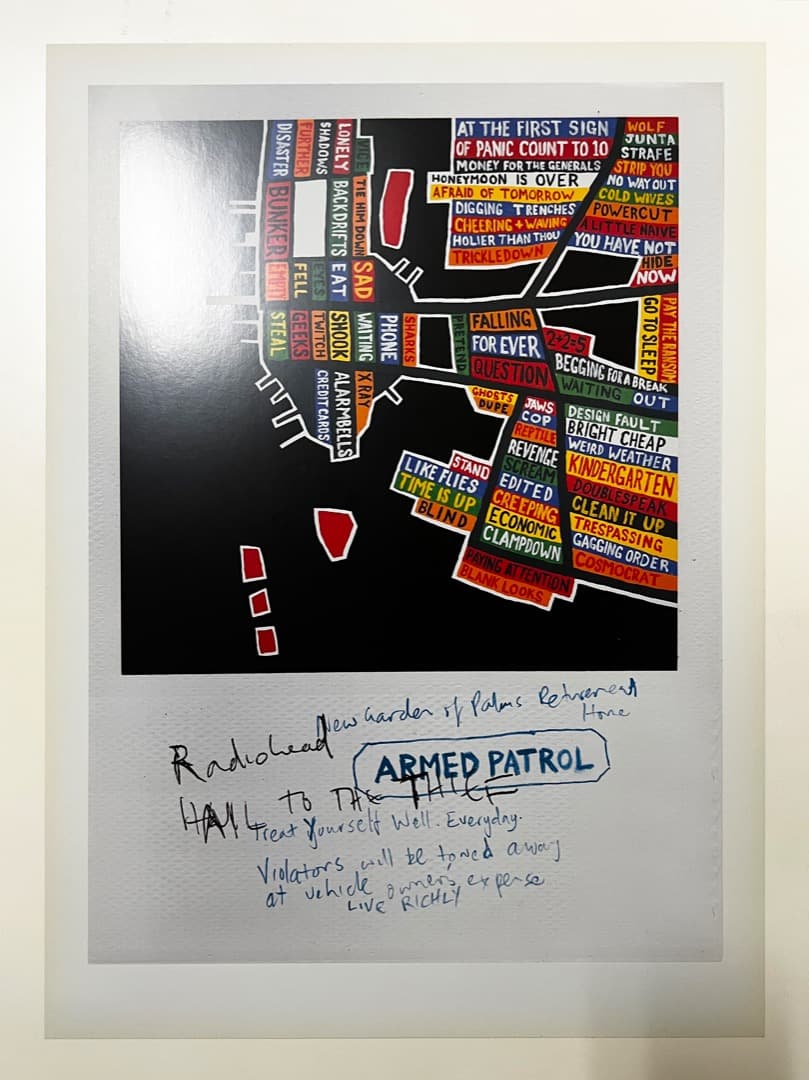 DISASTER
FURTHER
SHADOWS
LONELY
VICE
BUNKER
BACKDRIFTS
TIE HIM DOWN
EMPTY
FELL
EYES
EAT
SAD
STEAL
GEEKS
TWITCH
SHOOK
WAITING
PHONE
SHARKS
CREDIT CARDS
ALARMBELLS
X RAY
AT THE FIRST SIGN
OF PANIC COUNT TO 10
MONEY FOR THE GENERALS
HONEYMOON IS OVER
AFRAID OF TOMORROW
DIGGING TRENCHES
CHEERING + WAVING
HOLIER THAN THOU
TRICKLEDOWN
WOLF
JUNTA
STRAFE
STRIP YOU
NO WAY OUT
COLD WIVES
POWERCUT
A LITTLE NAIVE
YOU HAVE NOT
HIDE
NOW
PRETEND
FALLING
FOR EVER
QUESTION
2+2=5
GO TO SLEEP
PAY THE RANSOM
BEGGING FOR A BREAK
WAITING OUT
GHOSTS
DUPE
JAWS
COP
REPTILE
REVENGE
SCREAM
EDITED
CREEPING
ECONOMIC
CLAMPDOWN
PAYING ATTENTION
BLANK LOOKS
STAND
LIKE FLIES
TIME IS UP
BLIND
DESIGN FAULT
BRIGHT CHEAP
WEIRD WEATHER
KINDERGARTEN
DOUBLESPEAK
CLEAN IT UP
TRESPASSING
GAGGING ORDER
COSMOCRAT
New Garden of Palms Retirement
Home
Radiohead
ARMED PATROL
HAIL TO THE THIEF
Treat Yourself Well. Everyday.
Violators will be towed away
at vehicle owner's expense
LIVE RICHLY